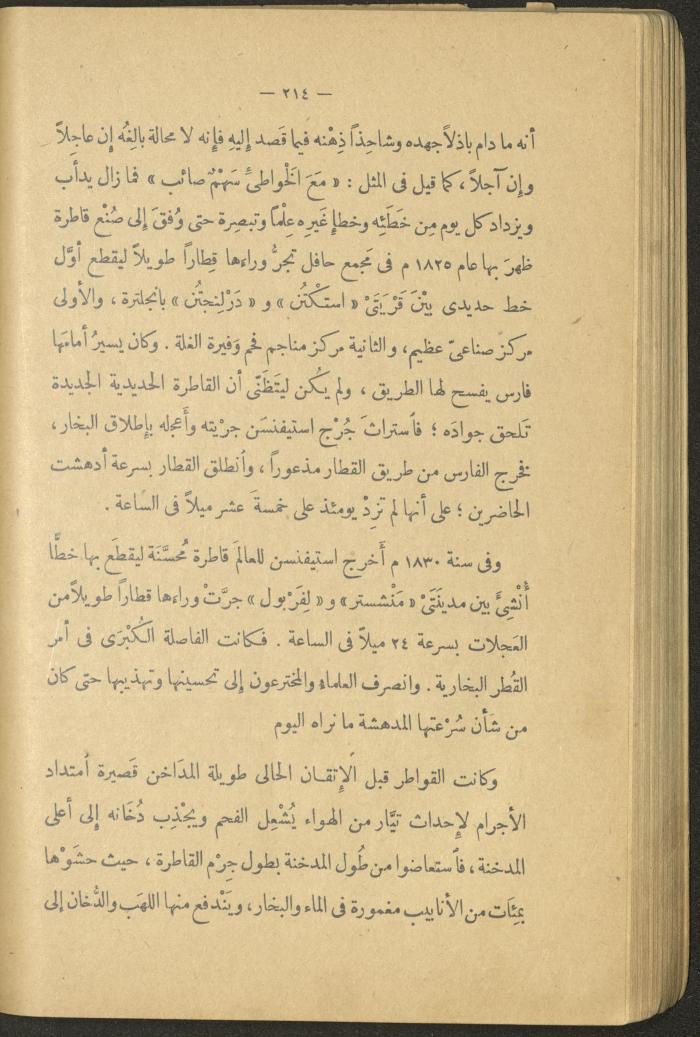 — ٢١٤ —
أنه ما دام باذلاً جهده وشاحِذاً ذِهْنه فيما قَصد إليهِ فإنه لا محالة بالِغُه إن عاجِلاً
وإن آجلاً ، كما قيل فى المثل : « مَعَ الخْواطىءِ سَهْمٌ صائب » فما زال يدأب
ويزداد كل يوم مِن خَطَئِه وخطإِ غَيرِه عِلْماً وتبصِرة حتى وُفقَ إلى صُنْع قاطرة
ظهرَ بها عام ١٨٢٥ م فى مَجمع حافل تجرُّ وراءها قِطاراً طويلاً ليقطع أوَّل
خط حديدى بيْنَ قَرْيَتَىْ « استكْتُن » و « دَرْلِنجتُن » بانجلترة ، والأولى
مركز صناعىّ عظيم، والثانية مركز مناجم فحم وَفيرة الغلة . وكان يسيرُ أمامَها
فارس يفسح لها الطريق ، ولم يكُن ليَتَظَنّى أن القاطرة الحديدية الجديدة
تَلحق جوادَه ؛ فاُستراثَ جُرْج استيفنسَن جرْيته وأَعجله بإِطلاق البخار ،
فخرج الفارس من طريق القطار مذعوراً ، واُنطلق القطار بسرعة أدهشت
الحاضرين ؛ على أنها لم تزِدْ يومئذ على خمسةَ عشر ميلاً فى الساعة .
وفى سنة ١٨٣٠ م أَخرج استيفنسن للعالمَ قاطرة مُحسَّنَة ليقطَع بها خطًّا
أُنْشِئَ بين مدينَتَىْ « مَنْشستر » و « لِفَرْبول » جرَّتْ وراءها قطاراً طويلاً من
العَجلات بسرعة ٢٤ ميلاً فى الساعة . فكانت الفاصلة الكُبْرَى فى أمر
القُطر البخارية . وانصرف العلماء والمخترعون إلى تحسينها وتهذيبها حتى كان
من شَأن سُرْعتها المدهشة ما نراه اليوم
وكانت القواطر قبل الإتقان الحالى طويلة المدَاخن قَصيرة اُمتداد
الأجرام لإحداث تيَّار من الهواء يُشْعِل الفحم ويجْذِب دُخَانه إلى أعلى
المدخنة ، فاُستعاضوا من طُول المدخنة بطول جِرْم القاطرة ، حيث حشَوْها
بمئَات من الأنابيب مغمورة فى الماء والبخار ، ويَنْدفع منها اللهَب والدُّخان إلى